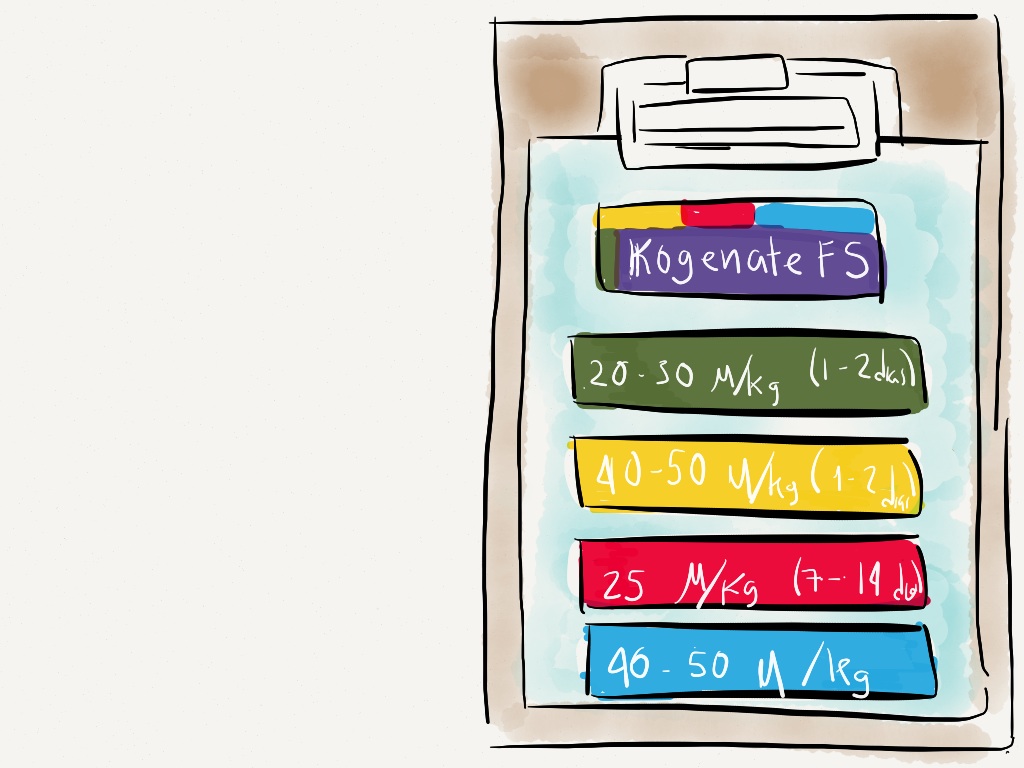 Kogenate FS
20-30 U/kg (1-2 dias)
40-50 U/kg (1-2 dias)
25 U/kg (7-14 dias)
40-50 U/kg